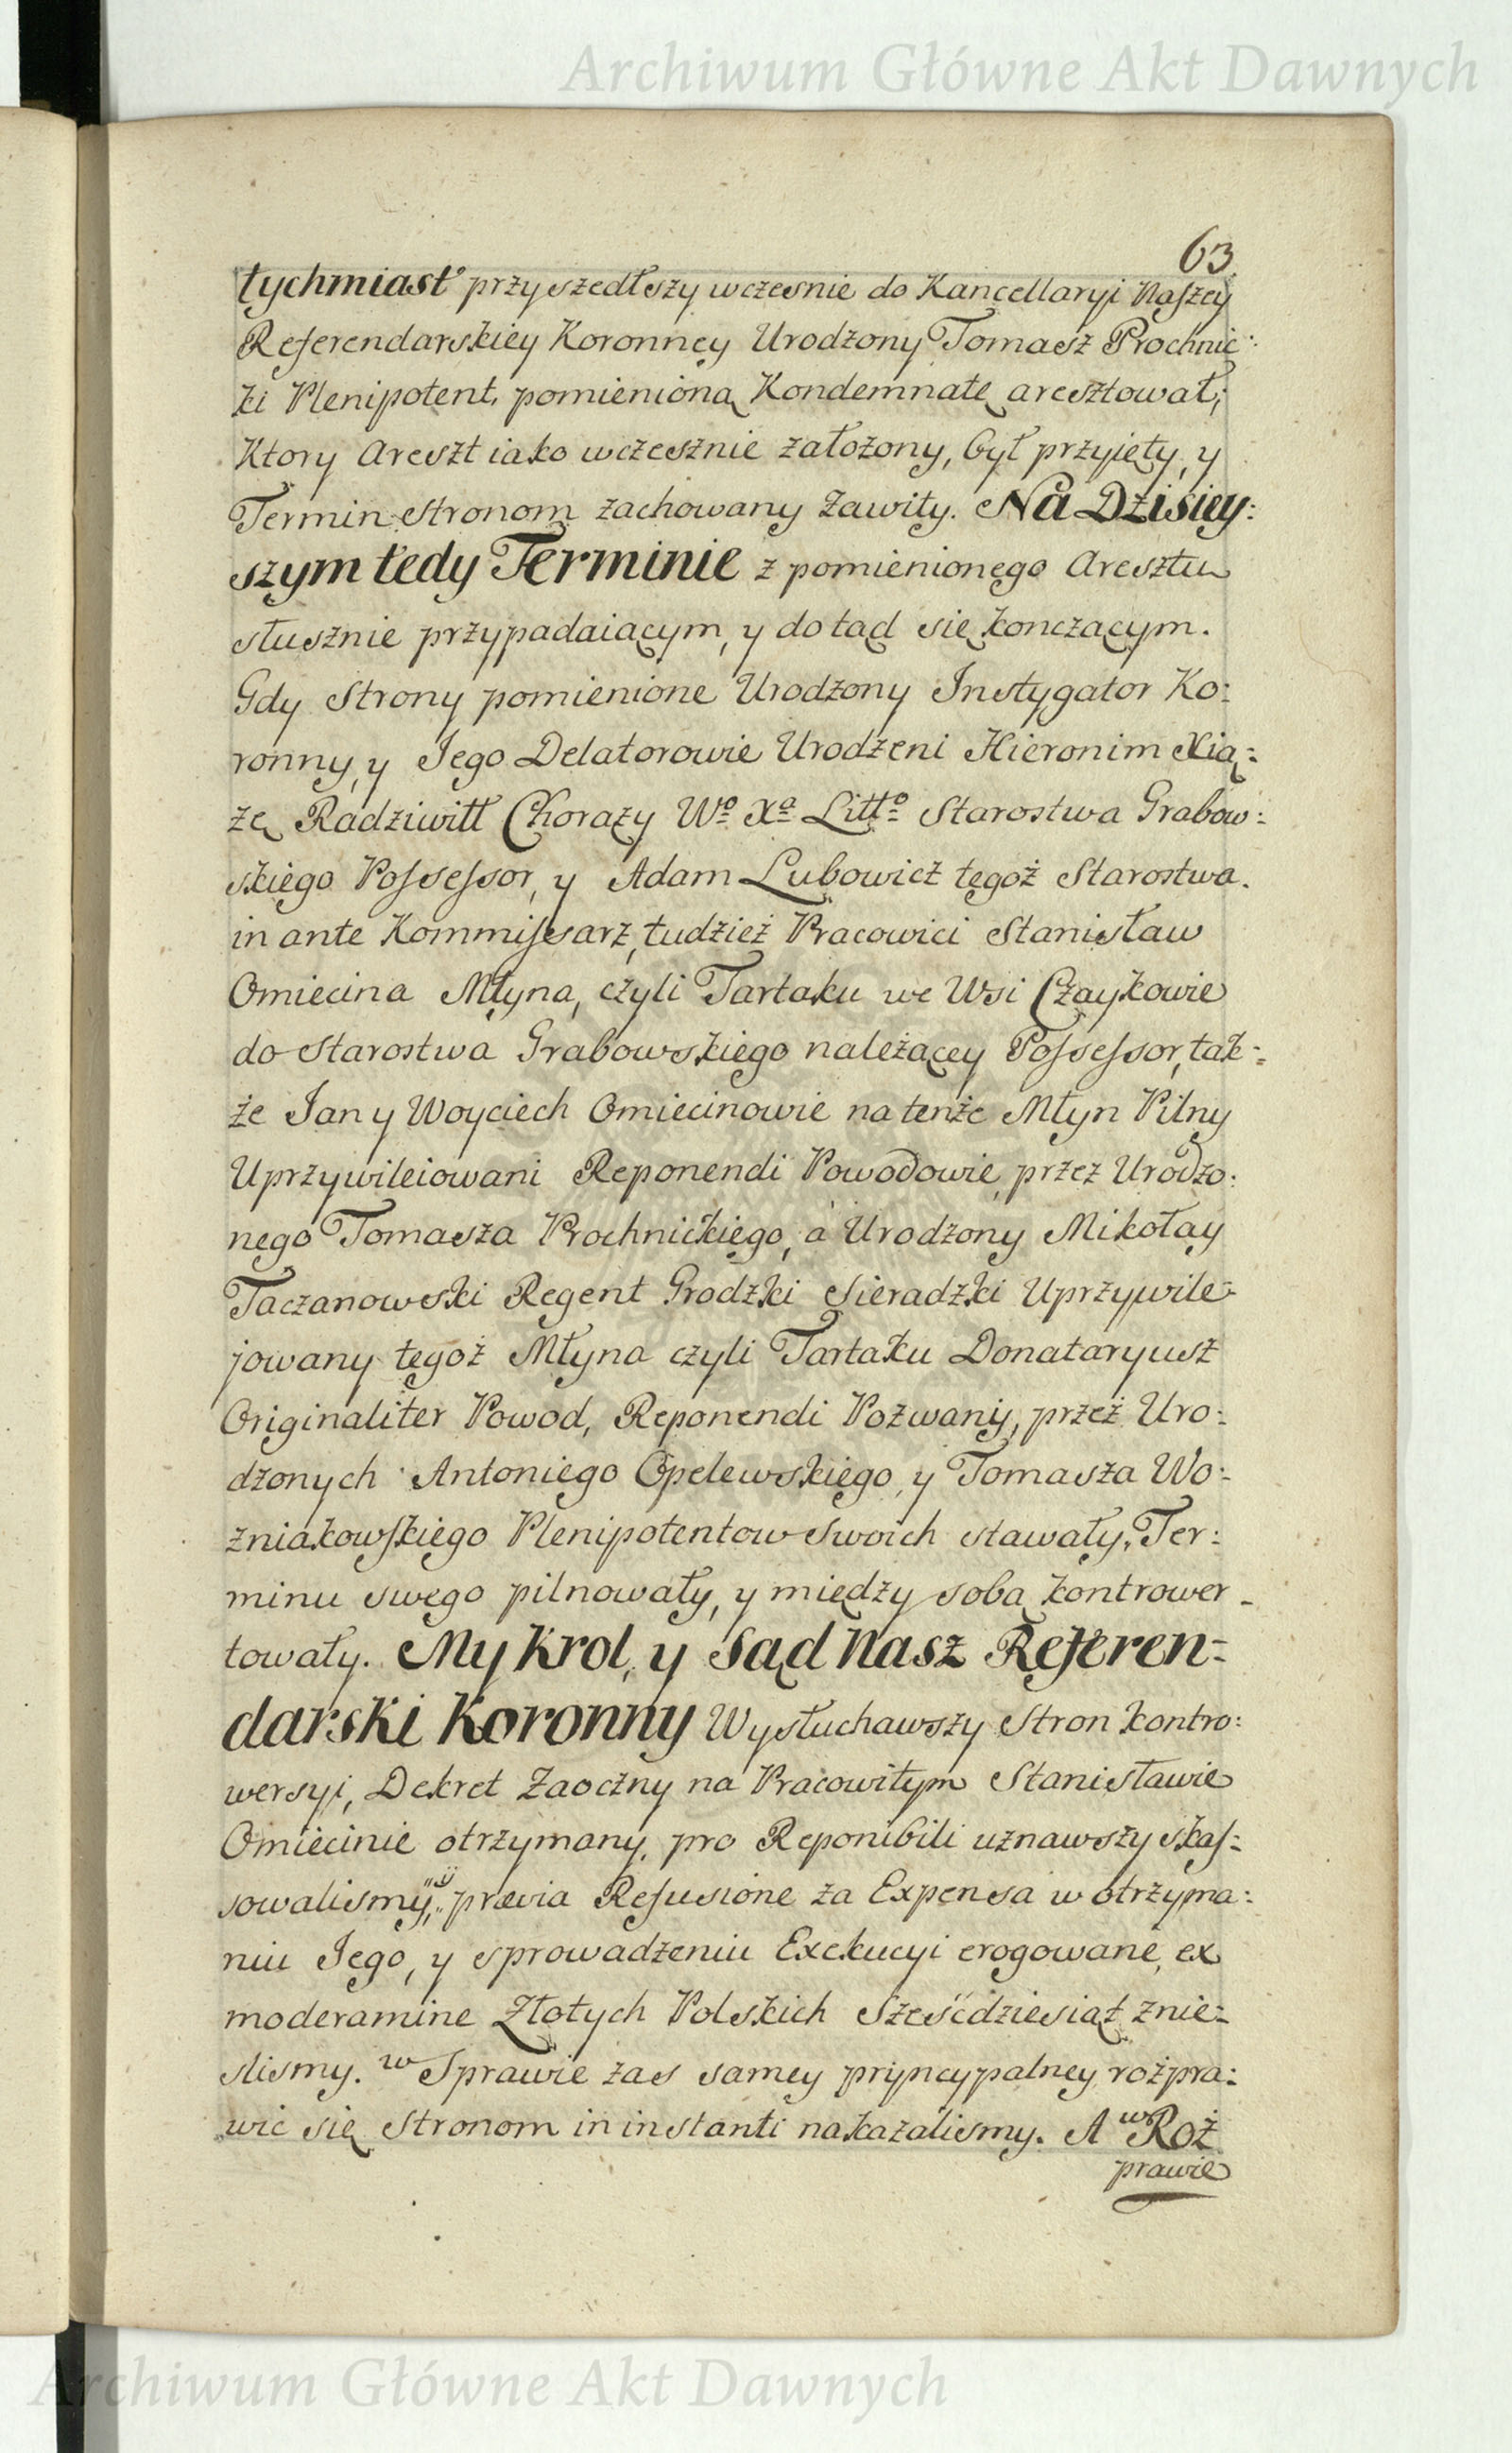 Archiwum Główne Akt Dawnych
63
tychmiast przyszedłszy wczesnie do Kancellaryi Naszey
Referendarskiey Koronney Urodzony Tomasz Prochnic:
ki Plenipotent, pomienioną Kondemnatę aresztował;
Ktory Areszt iako wczesznie założony, był przyięty, y
Termin Stronom zachowany Zawity. Na Dzisiey:
szym tedy Terminie z pomienionego Aresztu
słusznie przypadaiącym, y do tąd się konczącym.
Gdy Strony pomienione Urodzony Instygator Ko:
ronny, y Jego Delatorowie Urodzeni Hieronim Xią:
żę Radziwiłł Chorąży Wo Xa Litto Starostwa Grabow:
skiego Possessor, y Adam Lubowicz tegoż Starostwa.
in ante Kommissarz, tudzież Pracowici Stanisław
Omiecina Młyna, czyli Tartaku we Wsi Czaykowie
do Starostwa Grabowskiego należącey Possessor, tak:
że Jan y Woyciech Omiecinowie na tenże Młyn Pilny
Uprzywileiowani Reponendi Powodowie, przez Urodzo:
nego Tomasza Prochnickiego, à Urodzony Mikołay
Taczanowski Regent Grodzki Sieradzki Uprzywile:
jowany tegoż Młyna czyli Tartaku Donataryusz
Originaliter Powod, Reponendi Pozwany, przez Uro:
dzonych Antoniego Opelewskiego, y Tomasza Wo:
zniakowskiego Plenipotentow swoich stawały, Ter:
minu swego pilnowały, y między sobą kontrower-
towały. My Krol, y Sąd Nasz Referen:
darski Koronny Wysłuchawszy Stron kontro:
wersyi, Dekret Zaoczny na Pracowitym Stanisławie
Omiecinie otrzymany, pro Reponibili uznawszy skas:
sowalismy, y prævia Refusione za Expensa w otrzyma:
niu Jego, y sprowadzeniu Exekucyi erogowane, ex
moderamine Złotych Polskich Sześćdziesiąt znie:
slismy. w Sprawie zas samey pryncypalney rozpra:
wic się Stronom in instanti nakazalismy. A w Roz
prawie
Archiwum Główne Akt Dawnych